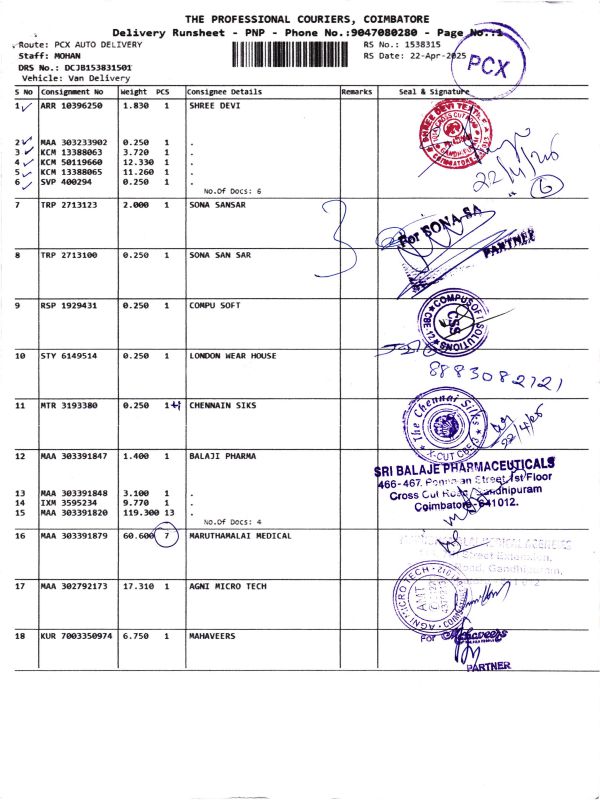 THE PROFESSIONAL COURIERS, COIMBATORE
Delivery Runsheet - PNP - Phone No.:9047080280 - Page No.:1
Route: PCX AUTO DELIVERY RS No.: 1538315
Staff: MOHAN RS Date: 22-Apr-2025
DRS No.: DCJB153831501
Vehicle: Van Delivery
PCX
S No Consignment No Weight PCS Consignee Details Remarks Seal & Signature
1 ARR 10396250 1.830 1 SHREE DEVI
2 MAA 303233902 0.250 1 .
3 KCM 13388063 3.720 1 .
4 KCM 50119660 12.330 1 .
5 KCM 13388065 11.260 1 .
6 SVP 400294 0.250 1 .
No.Of Docs: 6
22/4/25
6
7 TRP 2713123 2.000 1 SONA SANSAR
3
For SONA SA
PARTNER
8 TRP 2713100 0.250 1 SONA SAN SAR
9 RSP 1929431 0.250 1 COMPU SOFT
COMPUSOFT SOLUTIONS
CSS
CBE-12
10 STY 6149514 0.250 1 LONDON WEAR HOUSE
8883082721
11 MTR 3193380 0.250 1 CHENNAIN SIKS
The Chennai Silks
X-CUT CBE/3
22/4/25
12 MAA 303391847 1.400 1 BALAJI PHARMA
SRI BALAJE PHARMACEUTICALS
466-467, Street 1st Floor
Cross Cut Road, Gandhipuram
Coimbatore-641012.
13 MAA 303391848 3.100 1 .
14 IXM 3595234 9.770 1 .
15 MAA 303391820 119.300 13 .
No.Of Docs: 4
16 MAA 303391879 60.600 7 MARUTHAMALAI MEDICAL
Street Extension,
Road, Gandhipuram,
17 MAA 302792173 17.310 1 AGNI MICRO TECH
AGNI MICRO TECH
AMT
18 KUR 7003350974 6.750 1 MAHAVEERS
For Mahaveers
PARTNER